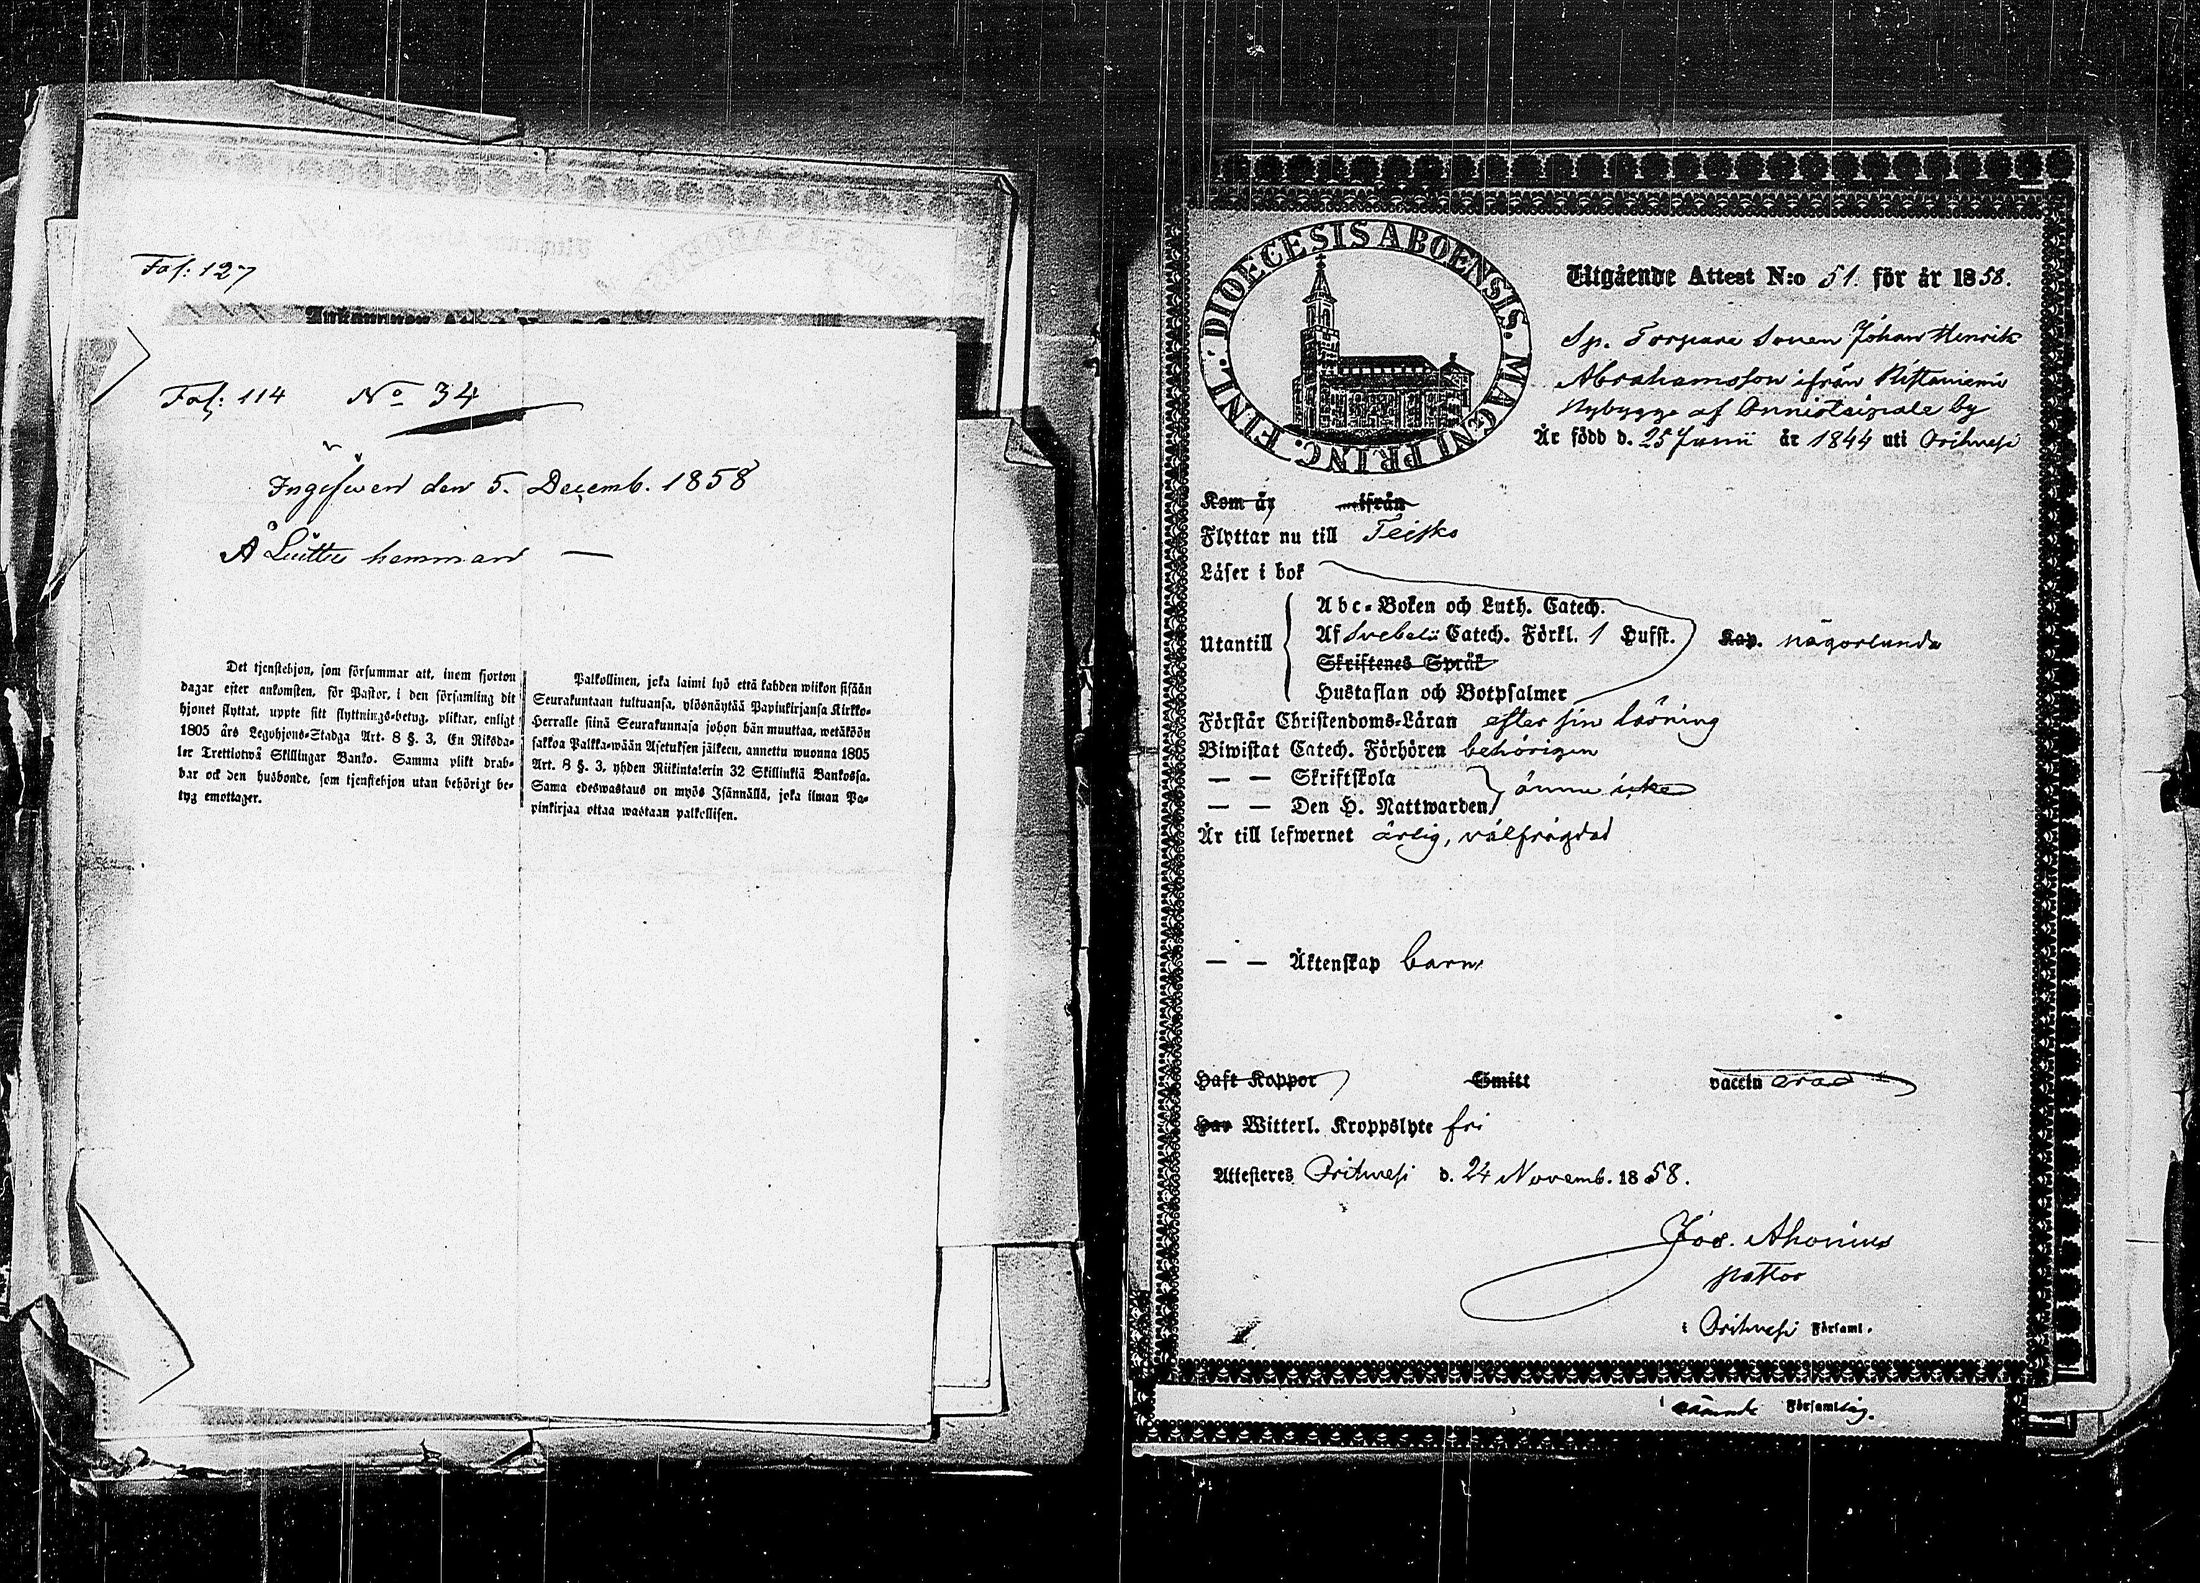 Fol: 127
Fol: 114 No 34
Ingifwen den 5. Decemb. 1858
Å Liuttu hemman —
Det tjenstehjon, som försummar att, inom fjorton
dagar efter ankomsten, för Pastor, i den församling dit
hjonet flyttat, uppte sitt flyttnings-betyg, pliktar, enligt
1805 års Legohjons-Stadga Art. 8 §. 3, En Riksda-
ler Trettiotwå Skillingar Banko. Samma plikt drab-
bar ock den husbonde, som tjenstehjon utan behörigt be-
tyg emottager.
Palkollinen, joka laimi lyö että kahden wiikon sisään
Seurakuntaan tultuansa, ylösnäytää Papinkirjansa Kirkko-
Herralle siinä Seurakunnasa johon hän muuttaa, wetäköön
sakkoa Palkka-wään Asetuksen jälkeen, annettu wuonna 1805
Art. 8 §. 3, yhden Riikintalerin 32 Skillinkiä Bankossa.
Sama edeswastaus on myös Isännällä, joka ilman Pa-
pinkirjaa ottaa wastaan palkollisen.
DIOECESIS ABOENSIS. MAGNI PRINC. FINL.
Utgående Attest N:o 51. för år 1858.
Sp. Torpare Sonen Johan Henrik
Abrahamsson ifrån Ristaniemi
Nybygge af Onnistaipale by
Är född d. 25 Junii år 1844 uti Orihvesi
Kom är ifrån
Flyttar nu till Teisko
Läser i bok
Utantill
Abc-Boken och Luth. Catech.
Af Svebelii Catech. Förkl. 1 Hufst. Kap. någorlunda
Skriftenes Språk
Hustaflan och Botpsalmer
Förstår Christendoms-Läran efter sin läsning
Biwistat Catech. Förhören behörigen
— — Skriftskola
— — Den H. Nattwarden ännu icke
Är till lefwernet ärlig, välfrägdad
— — Äktenskap barn
Haft Koppor Smitt vaccinerad
Har Witterl. Kroppslyte fri
Attesteras Orihvesi d. 24 Novemb. 1858.
Jos. Ahonius
pastor
i Orihvesi Församl.
i samma Församling.